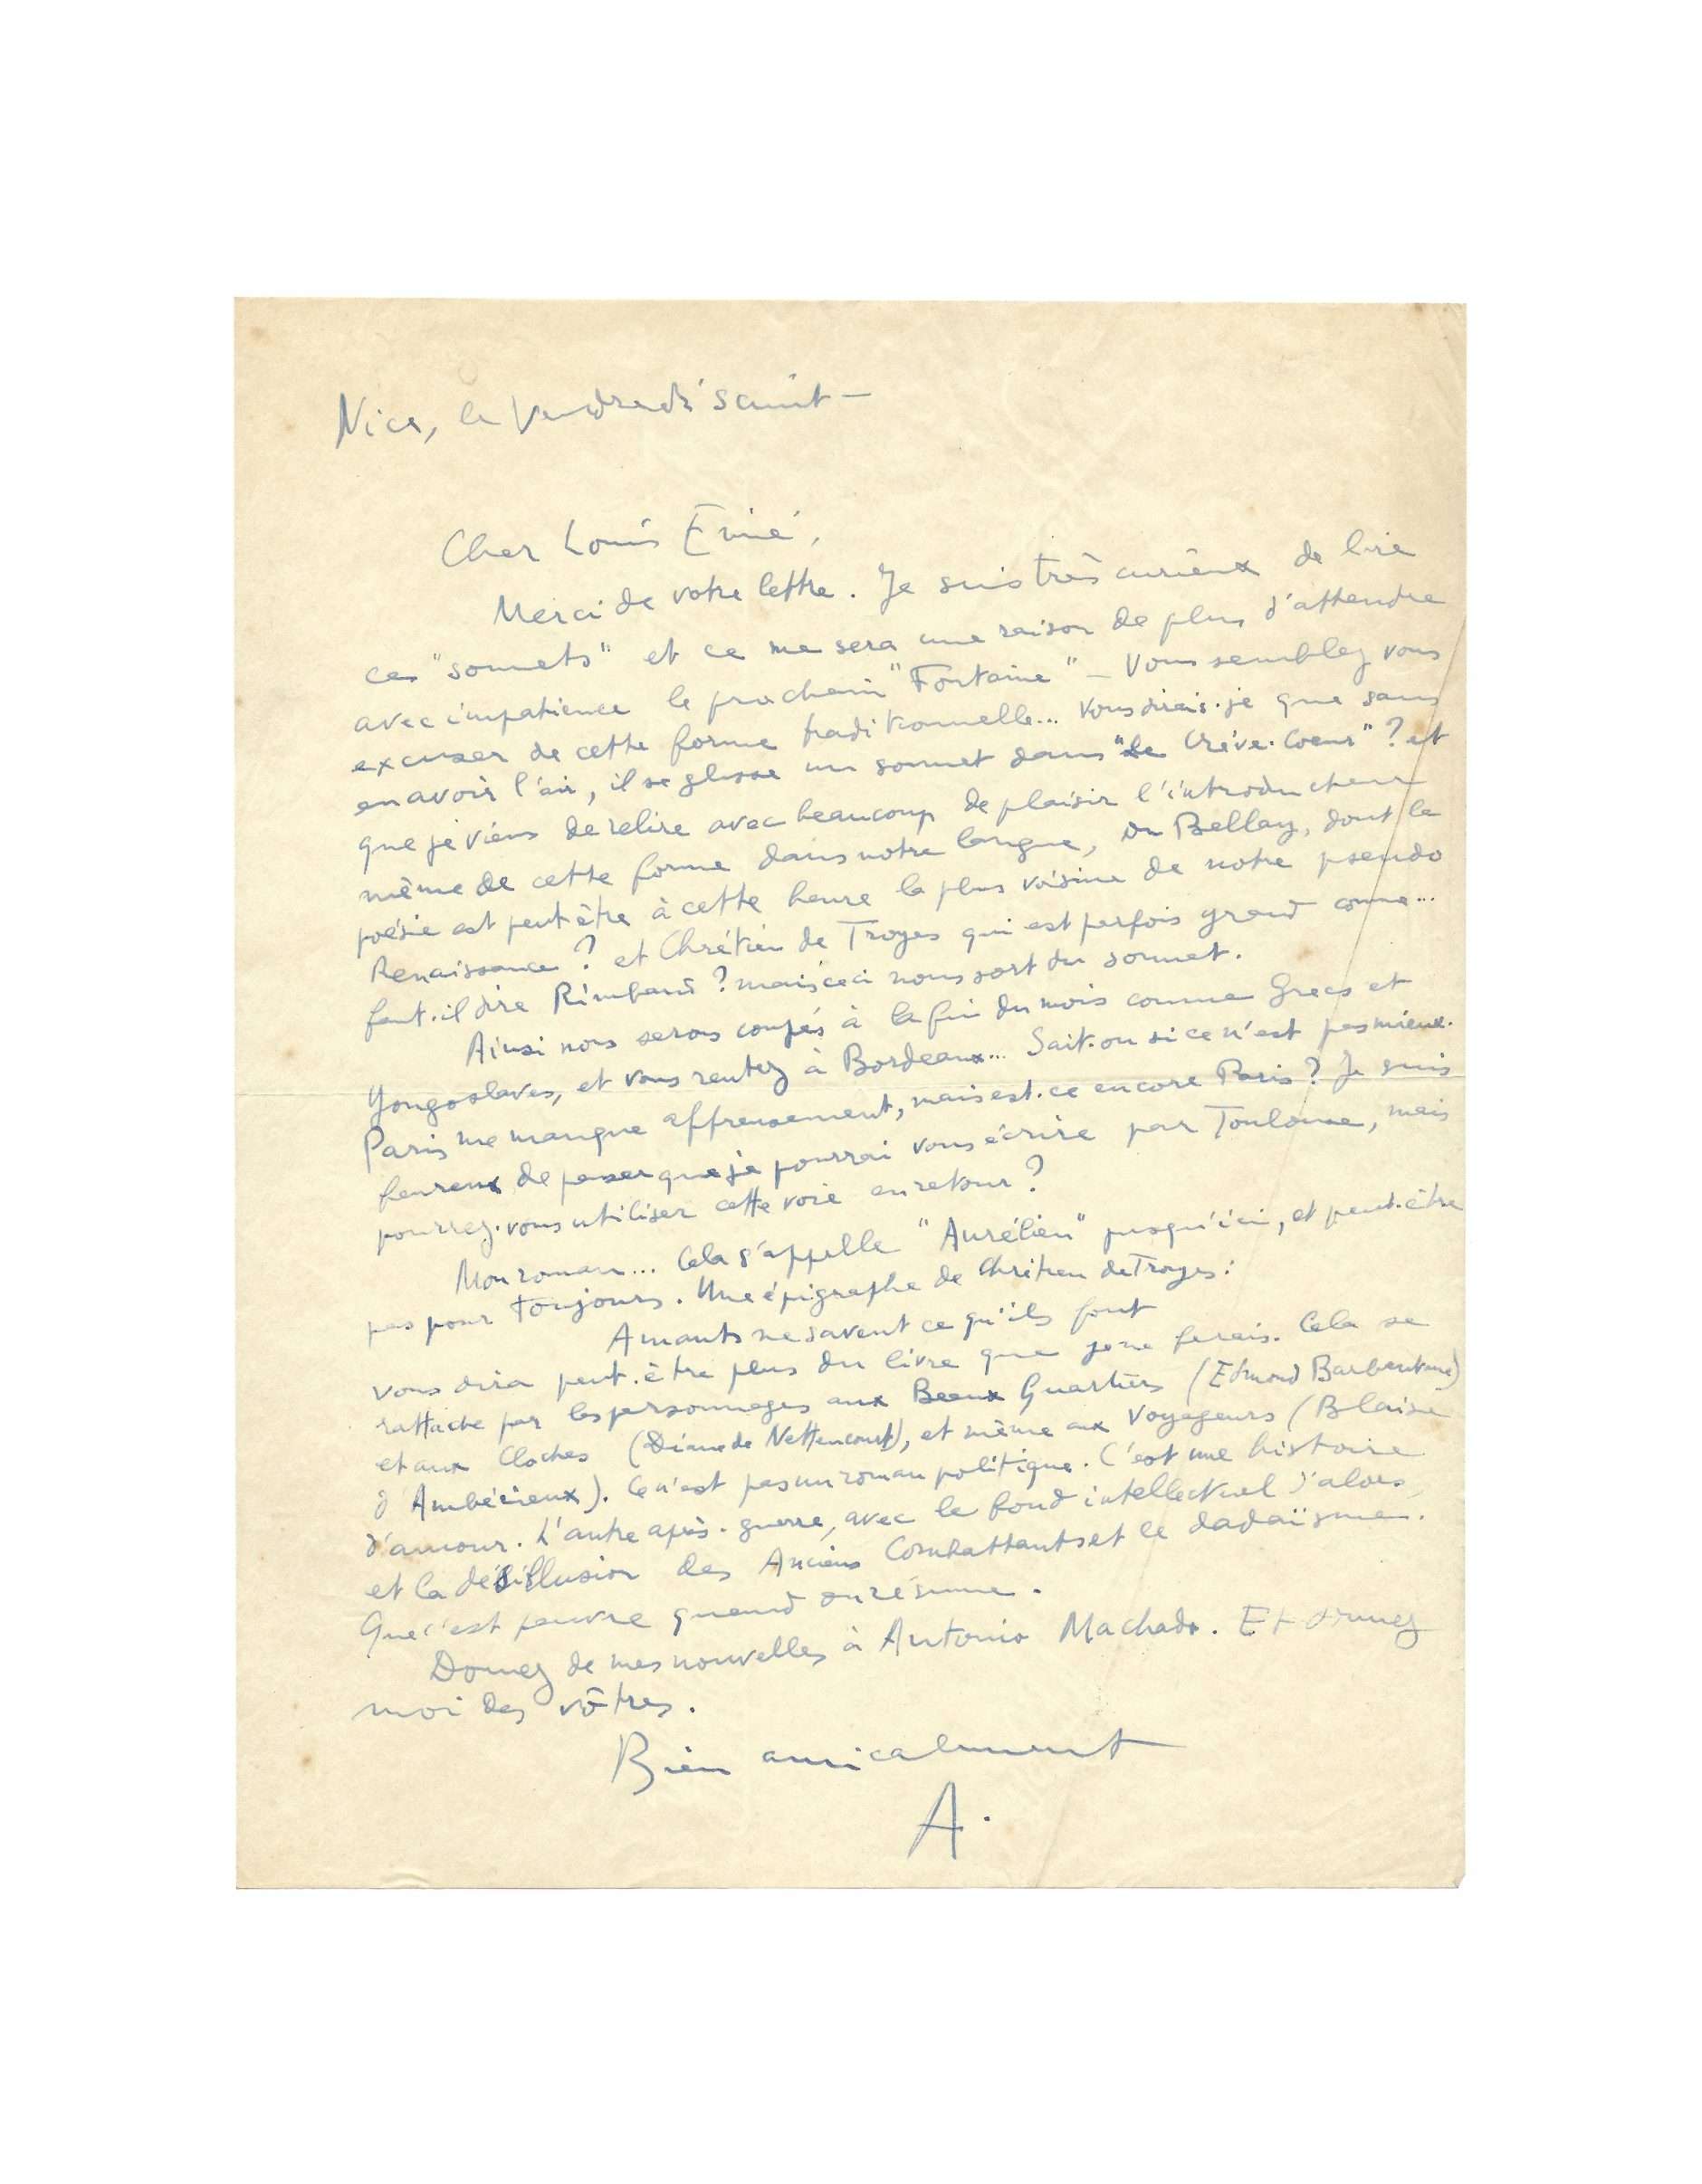 Nice, le Vendredi saint —
Cher Louis Emié,
Merci de votre lettre. Je suis très curieux de lire
ces "sonnets" et ce me sera une raison de plus d'attendre
avec impatience le prochain "Fontaine" — Vous semblez vous
excuser de cette forme traditionnelle... Vous dirais-je que sans
en avoir l'air, il se glisse un sonnet dans "le Crève-Coeur" ? et
que je viens de relire avec beaucoup de plaisir l'introducteur
même de cette forme dans notre langue, Du Bellay, dont la
poésie est peut-être à cette heure la plus voisine de notre pseudo
Renaissance ? et Chrétien de Troyes qui est parfois grand comme...
faut-il dire Rimbaud ? mais ceci nous sort du sonnet.
Ainsi nous serons coupés à la fin du mois comme Grecs et
Yougoslaves, et vous rentrez à Bordeaux... Sait-on si ce n'est pas mieux.
Paris me manque affreusement, mais est-ce encore Paris ? Je suis
heureux de penser que je pourrai vous écrire par Toulouse, mais
pourrez-vous utiliser cette voie en retour ?
Mon roman... Cela s'appelle "Aurélien" jusqu'ici, et peut-être
pas pour toujours. Une épigraphe de Chrétien de Troyes :
Amants ne savent ce qu'ils font
vous dira peut-être plus du livre que je ne ferais. Cela se
rattache par les personnages aux Beaux Quartiers (Edmond Barbentane)
et aux Cloches (Diane de Nettencourt), et même aux Voyageurs (Blaise
d'Ambérieux). Ce n'est pas un roman politique. C'est une histoire
d'amour. L'autre après-guerre, avec le fond intellectuel d'alors,
et la désillusion des Anciens Combattants et le dadaïsme.
Que c'est pauvre quand on résume.
Donnez de mes nouvelles à Antonio Machado. Et donnez
moi des vôtres.
Bien amicalement
A.